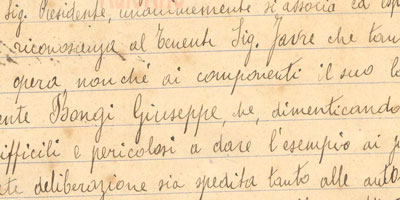 Sig. Presidente, unanimemente si associa ed esp
riconoscenza al Tenente Sig. Favre che tan
opera nonché ai componenti il suo lo
ente Bongi Giuseppe, he, dimenticando
ifficili e pericolosi a dare l'esempio ai p
te deliberazione sia spedita tanto alle auto